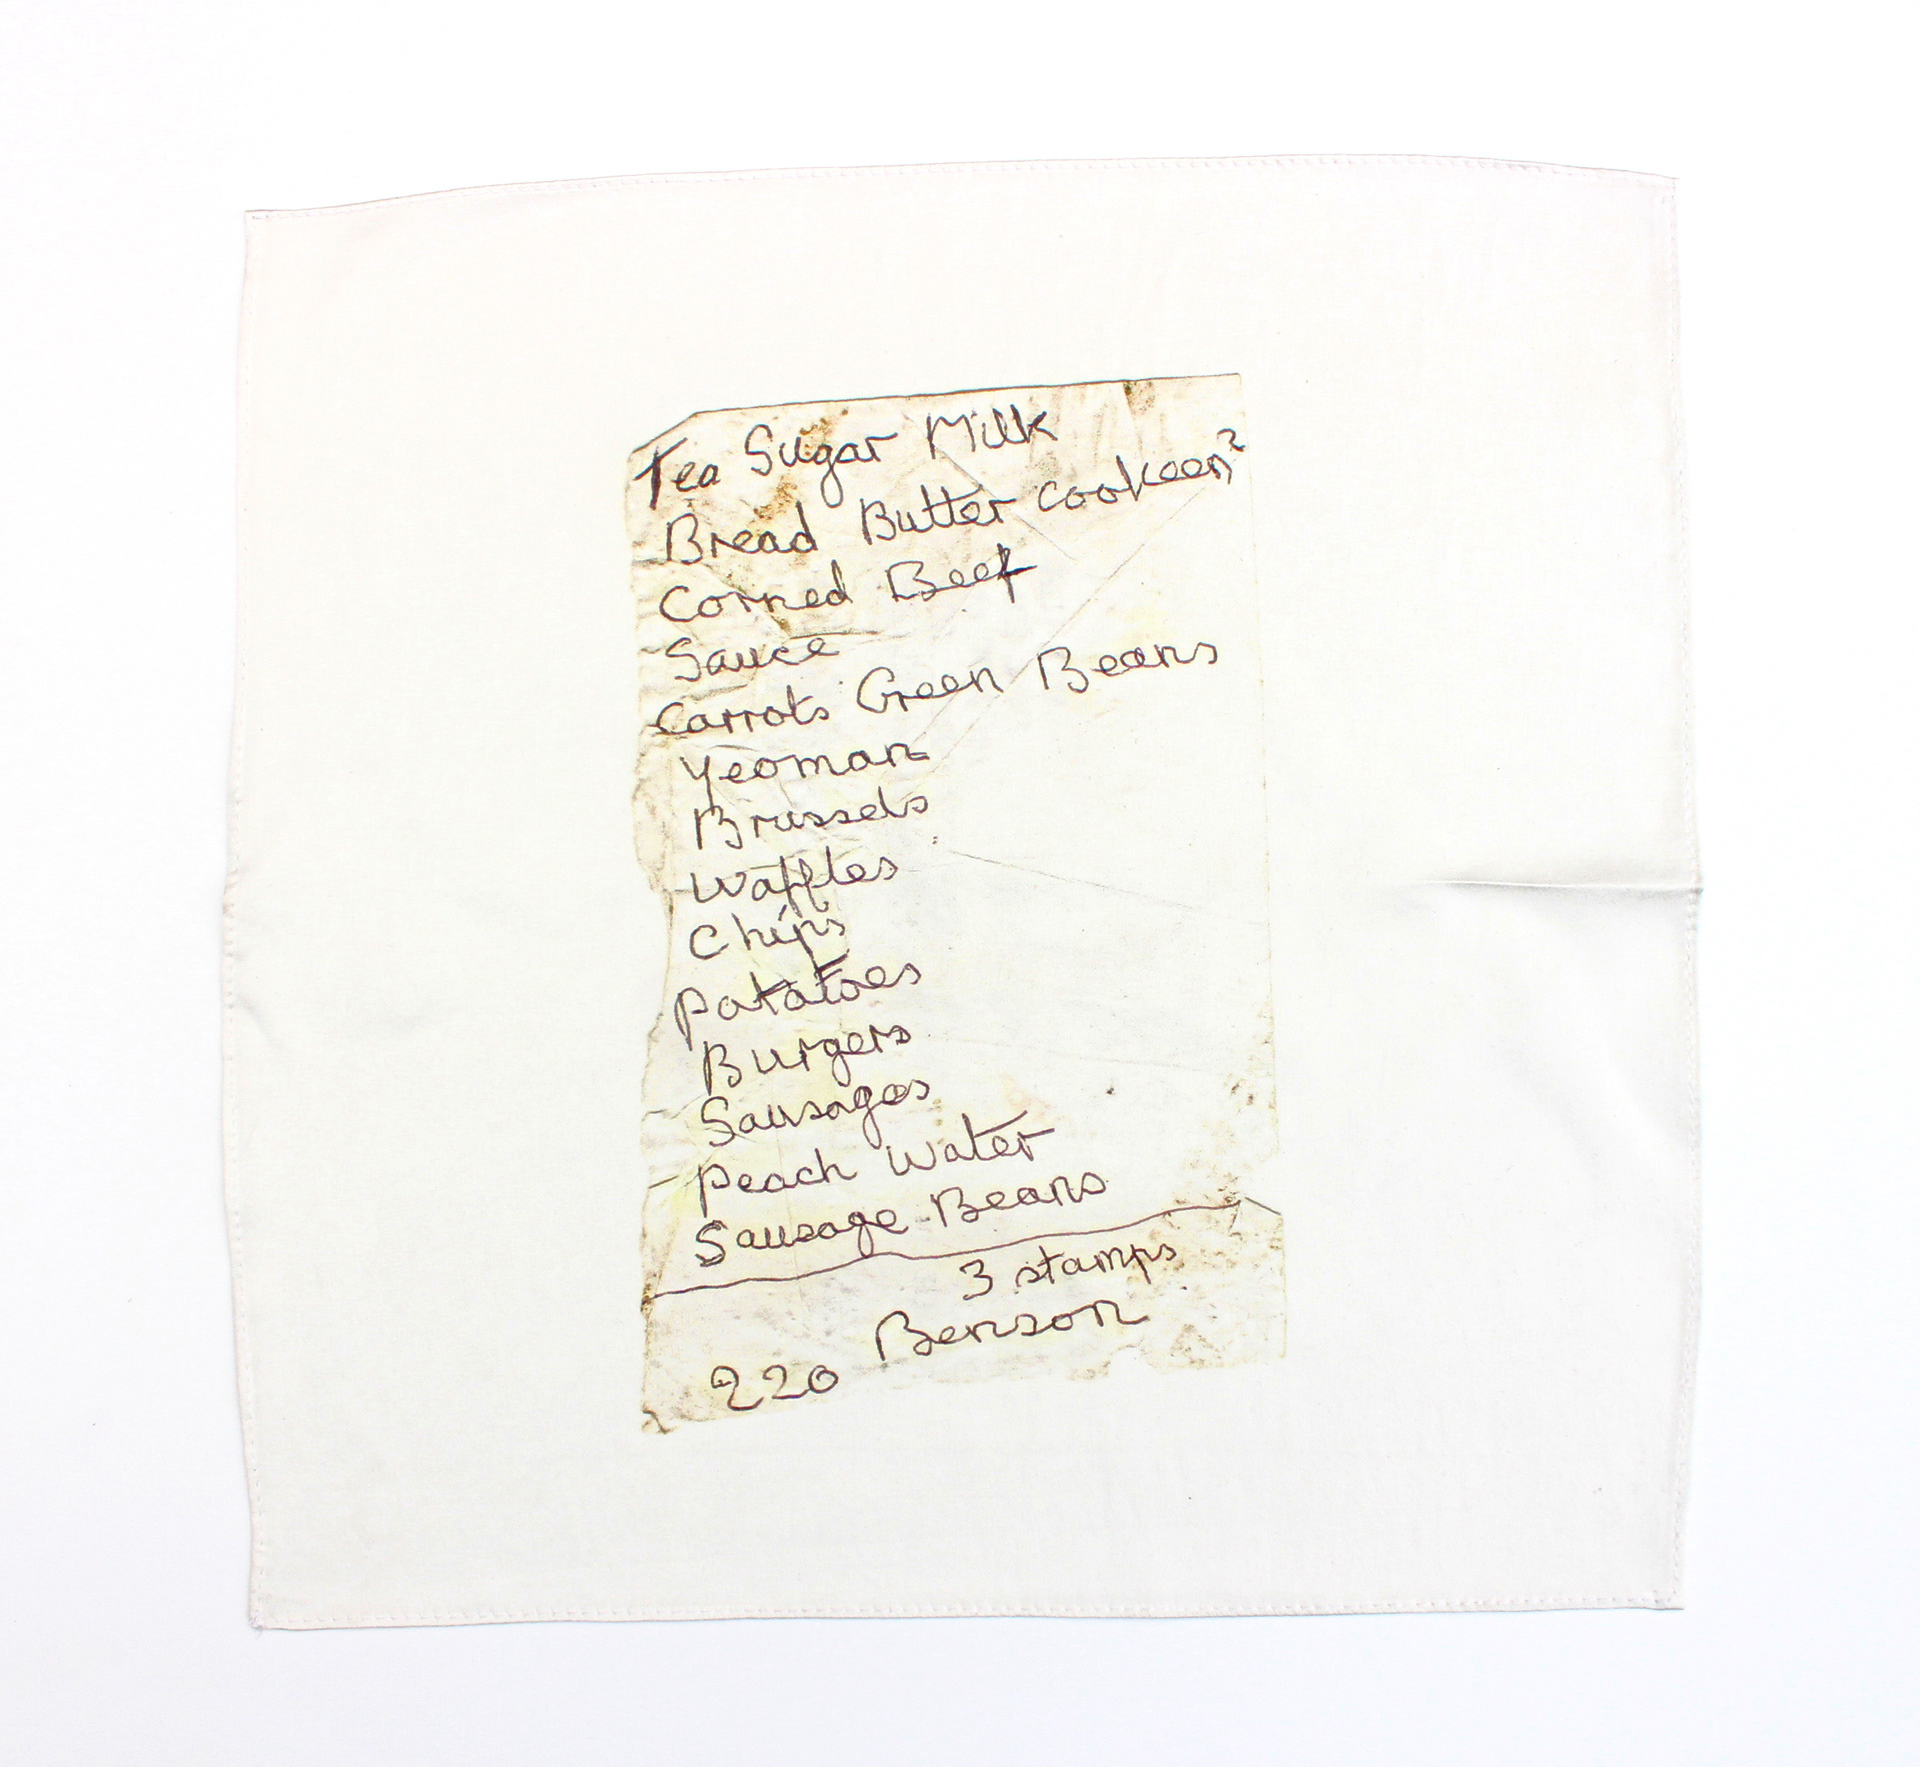 Tea Sugar Milk
Bread Butter Cookeen²
Corned Beef
Sauce
Carrots Green Beans
Yeoman
Brussels
Waffles
Chips
Potatoes
Burgers
Sausages
Peach Water
Sausage Beans
3 stamps
Benson
220